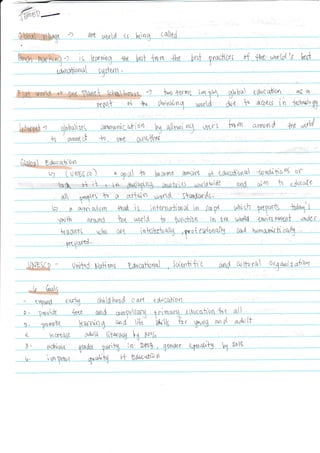 Global village → the world is being called
Bench marking → is learning the best from the best practices of the world's best
educational system.
Flat world or one Planet schoolhouse → two terms imply global education as a
result of the shrinking world due to access in technology
Internet → globalises communication by allowing users from around the world
to connect to one another
Global Education
↳ (UNESCO) a goal to become aware of educational conditions or
lack of it in developing countries worldwide and aim to educate
all peoples to a certain world standards.
↳ a curriculum that is international in scope which prepares today's
youth around the world to function in one world environment under
teachers who are intellectually, professionally and humanistically
prepared.
UNESCO - United Nations Educational Scientific and Cultural Organization
Goals
- expand early childhood care education
2. provide free and compulsory primary education for all
3. promote learning and life skills for young and adult
4. increase adult literacy by 50%
5. achieve gender parity in gender equality by
6. improve quality of education